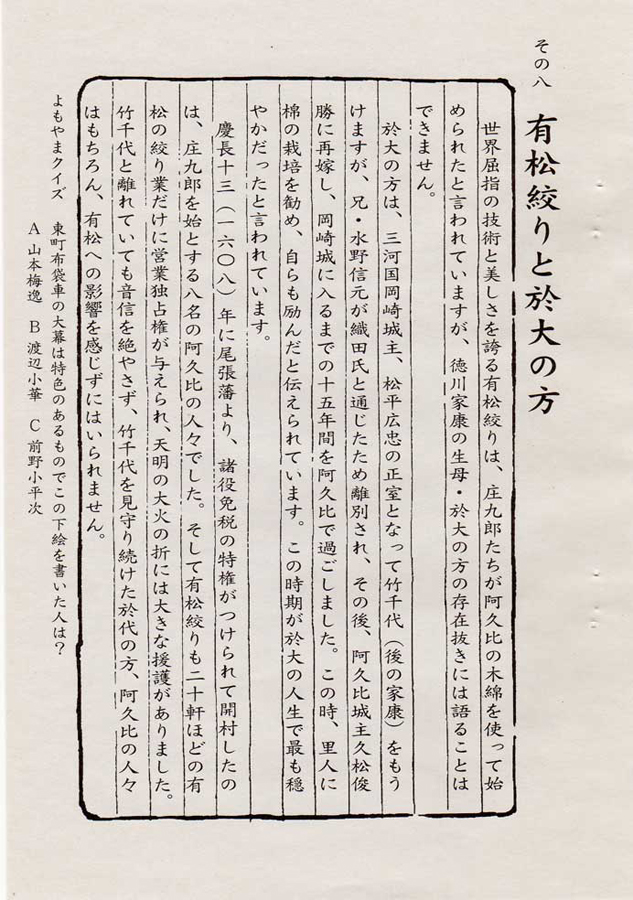 その八　有松絞りと於大の方
世界屈指の技術と美しさを誇る有松絞りは、庄九郎たちが阿久比の木綿を使って始
められたと言われていますが、徳川家康の生母・於大の方の存在抜きには語ることは
できません。
於大の方は、三河国岡崎城主、松平広忠の正室となって竹千代（後の家康）をもう
けますが、兄・水野信元が織田氏と通じたため離別され、その後、阿久比城主久松俊
勝に再嫁し、岡崎城に入るまでの十五年間を阿久比で過ごしました。この時、里人に
棉の栽培を勧め、自らも励んだと伝えられています。この時期が於大の人生で最も穏
やかだったと言われています。
慶長十三（一六〇八）年に尾張藩より、諸役免税の特権がつけられて開村したの
は、庄九郎を始とする八名の阿久比の人々でした。そして有松絞りも二十軒ほどの有
松の絞り業だけに営業独占権が与えられ、天明の大火の折には大きな援護がありました。
竹千代と離れていても音信を絶やさず、竹千代を見守り続けた於代の方、阿久比の人々
はもちろん、有松への影響を感じずにはいられません。
よもやまクイズ　東町布袋車の大幕は特色のあるものでこの下絵を書いた人は？
A 山本梅逸　B 渡辺小華　C 前野小平次